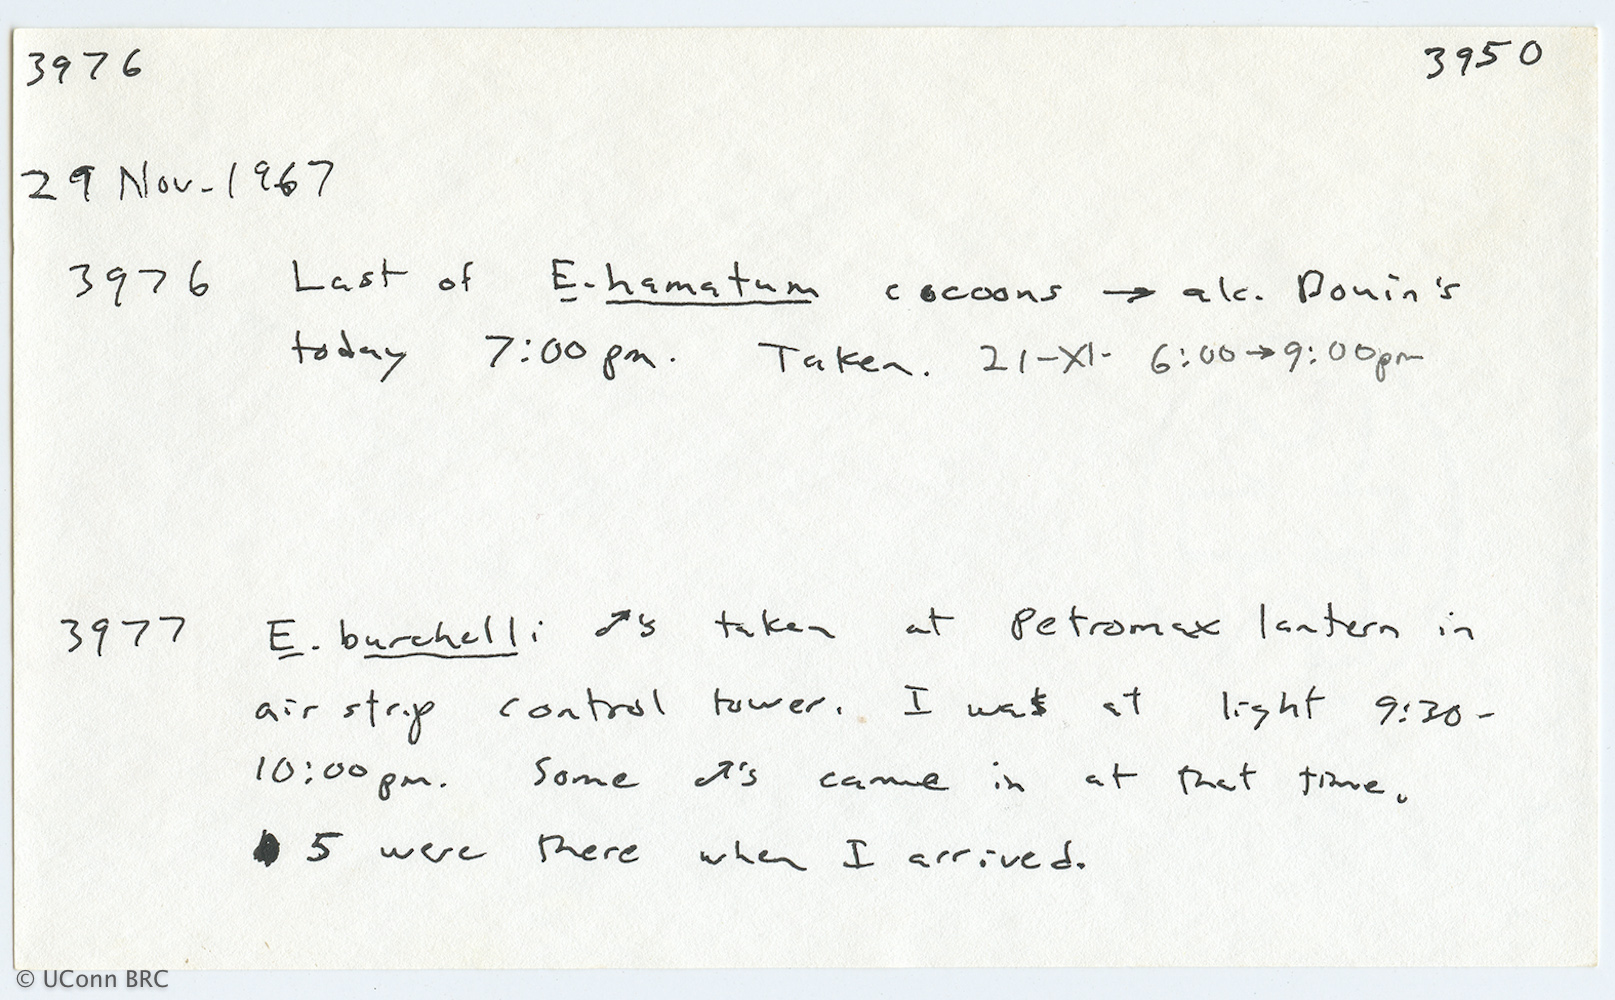 3976 3950
29 Nov-1967
3976 Last of E. hamatum cocoons → alc. Bouin's
today 7:00 pm. Taken. 21-XI- 6:00→9:00pm
3977 E. burchelli ♂'s taken at Petromax lantern in
air strip control tower. I was at light 9:30-
10:00 pm. Some ♂'s came in at that time.
5 were there when I arrived.
© UConn BRC